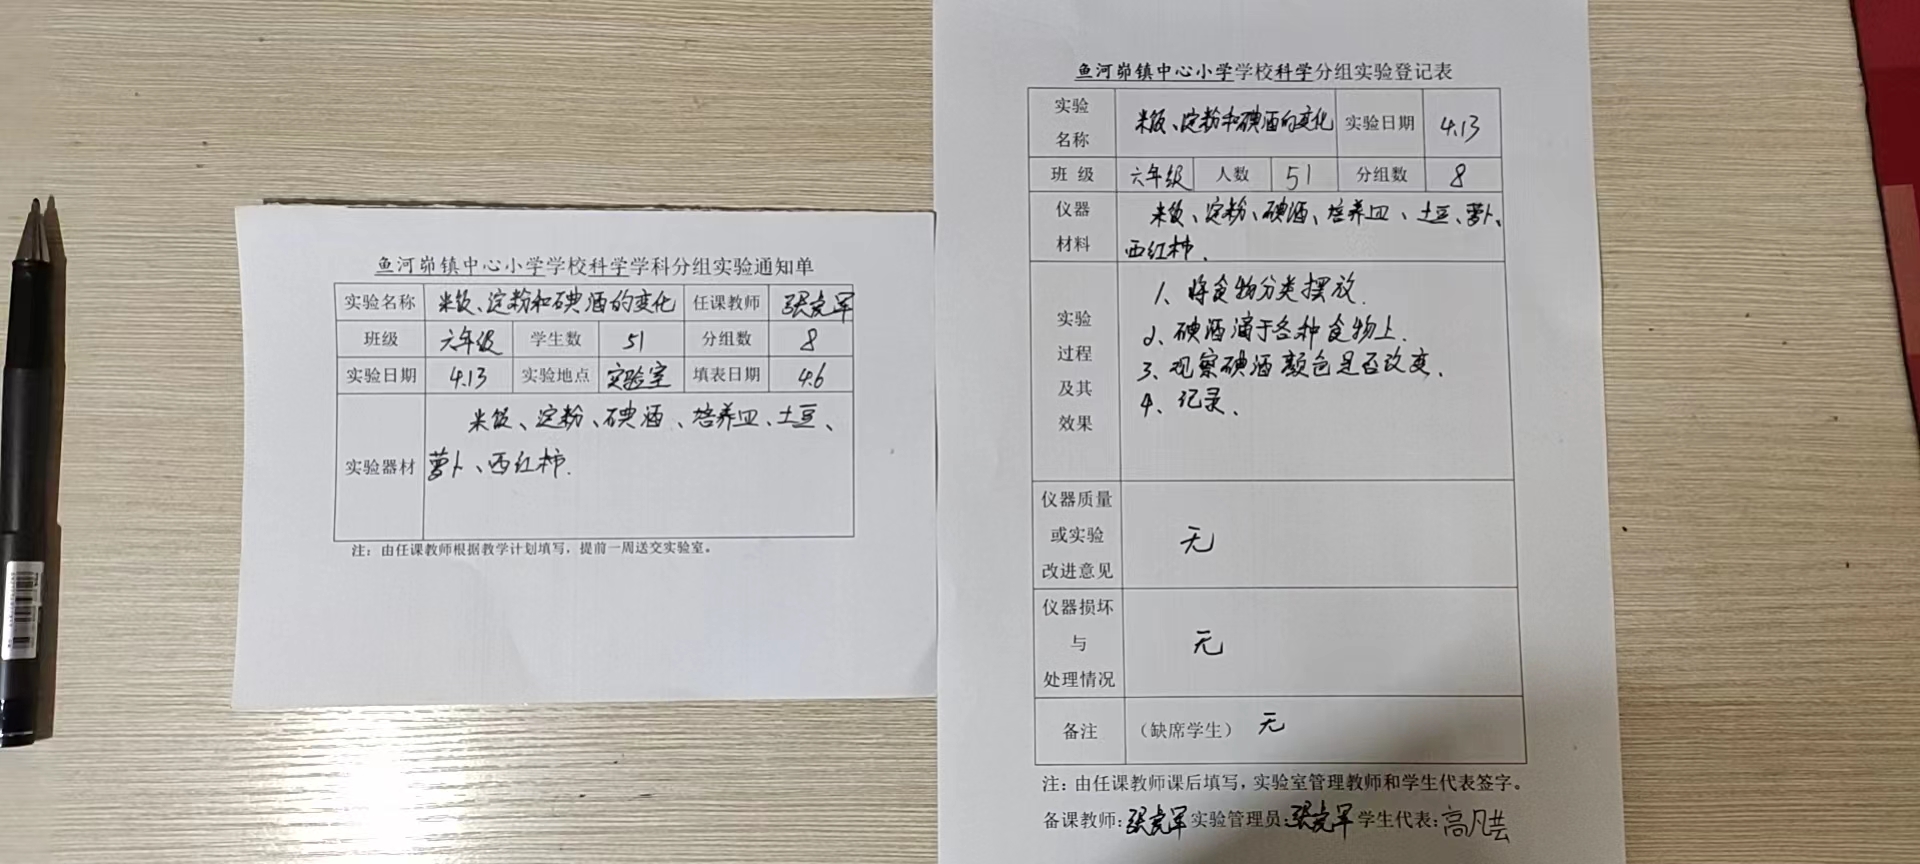 鱼河峁镇中心小学学校科学学科分组实验通知单
实验名称 米饭、淀粉和碘酒的变化 任课教师
班级 六年级 学生数 51 分组数 8
实验日期 4.13 实验地点 实验室 填表日期 4.6
实验器材 米饭、淀粉、碘酒、培养皿、土豆、
萝卜、西红柿.
注：由任课教师根据教学计划填写，提前一周送交实验室。
鱼河峁镇中心小学学校科学分组实验登记表
实验名称 米饭、淀粉和碘酒的变化 实验日期 4.13
班 级 六年级 人数 51 分组数 8
仪器材料 米饭、淀粉、碘酒、培养皿、土豆、萝卜、
西红柿.
实验过程及其效果
1、将食物分类摆放.
2、碘酒滴于各种食物上.
3、观察碘酒颜色是否改变.
4、记录.
仪器质量或实验改进意见 无
仪器损坏与处理情况 无
备注 （缺席学生） 无
注：由任课教师课后填写，实验室管理教师和学生代表签字。
备课教师: 实验管理员: 学生代表: